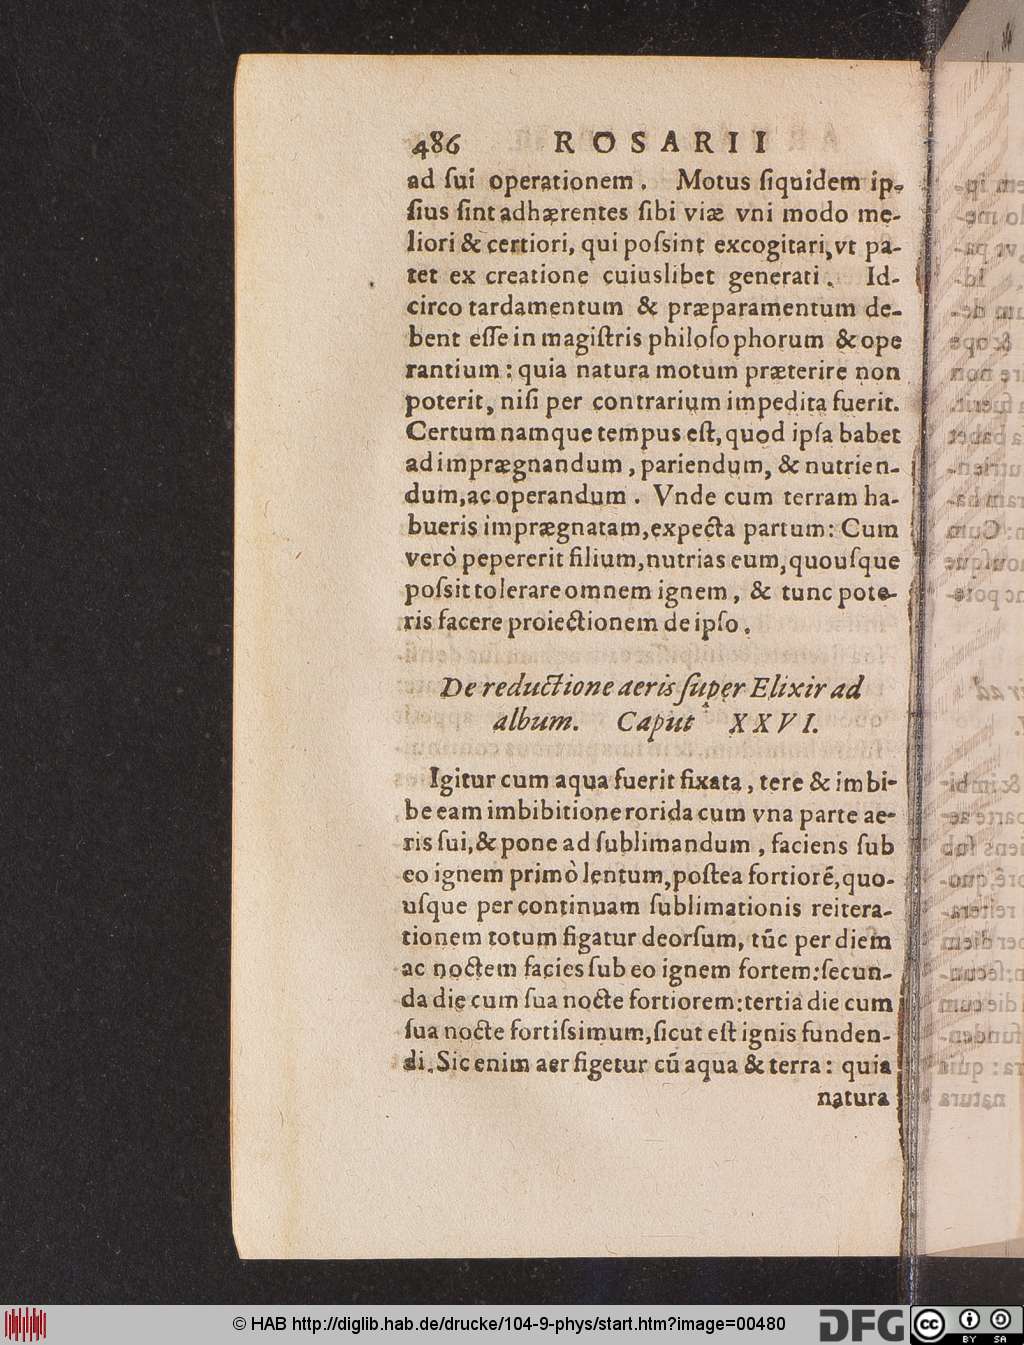 486 ROSARII
ad ſui operationem. Motus ſiquidem ip-
ſius ſint adhærentes ſibi viæ vni modo me-
liori & certiori, qui poſsint excogitari, vt pa-
tet ex creatione cuiuslibet generati. Id-
circo tardamentum & præparamentum de-
bent eſſe in magiſtris philoſophorum & ope
rantium: quia natura motum præterire non
poterit, niſi per contrarium impedita fuerit.
Certum namque tempus eſt, quod ipſa babet
ad imprægnandum, pariendum, & nutrien-
dum, ac operandum. Vnde cum terram ha-
bueris imprægnatam, expecta partum: Cum
verò pepererit filium, nutrias eum, quouſque
poſsit tolerare omnem ignem, & tunc pote-
ris facere proiectionem de ipſo.
De reductione aeris ſuper Elixir ad
album. Caput XXVI.
Igitur cum aqua fuerit fixata, tere & imbi-
be eam imbibitione rorida cum vna parte ae-
ris ſui, & pone ad ſublimandum, faciens ſub
eo ignem primò lentum, poſtea fortiorẽ, quo-
uſque per continuam ſublimationis reitera-
tionem totum figatur deorſum, tũc per diem
ac noctem facies ſub eo ignem fortem: ſecun-
da die cum ſua nocte fortiorem: tertia die cum
ſua nocte fortiſsimum, ſicut eſt ignis funden-
di. Sic enim aer figetur cũ aqua & terra: quia
natura
© HAB http://diglib.hab.de/drucke/104-9-phys/start.htm?image=00480
DFG
cc BY SA